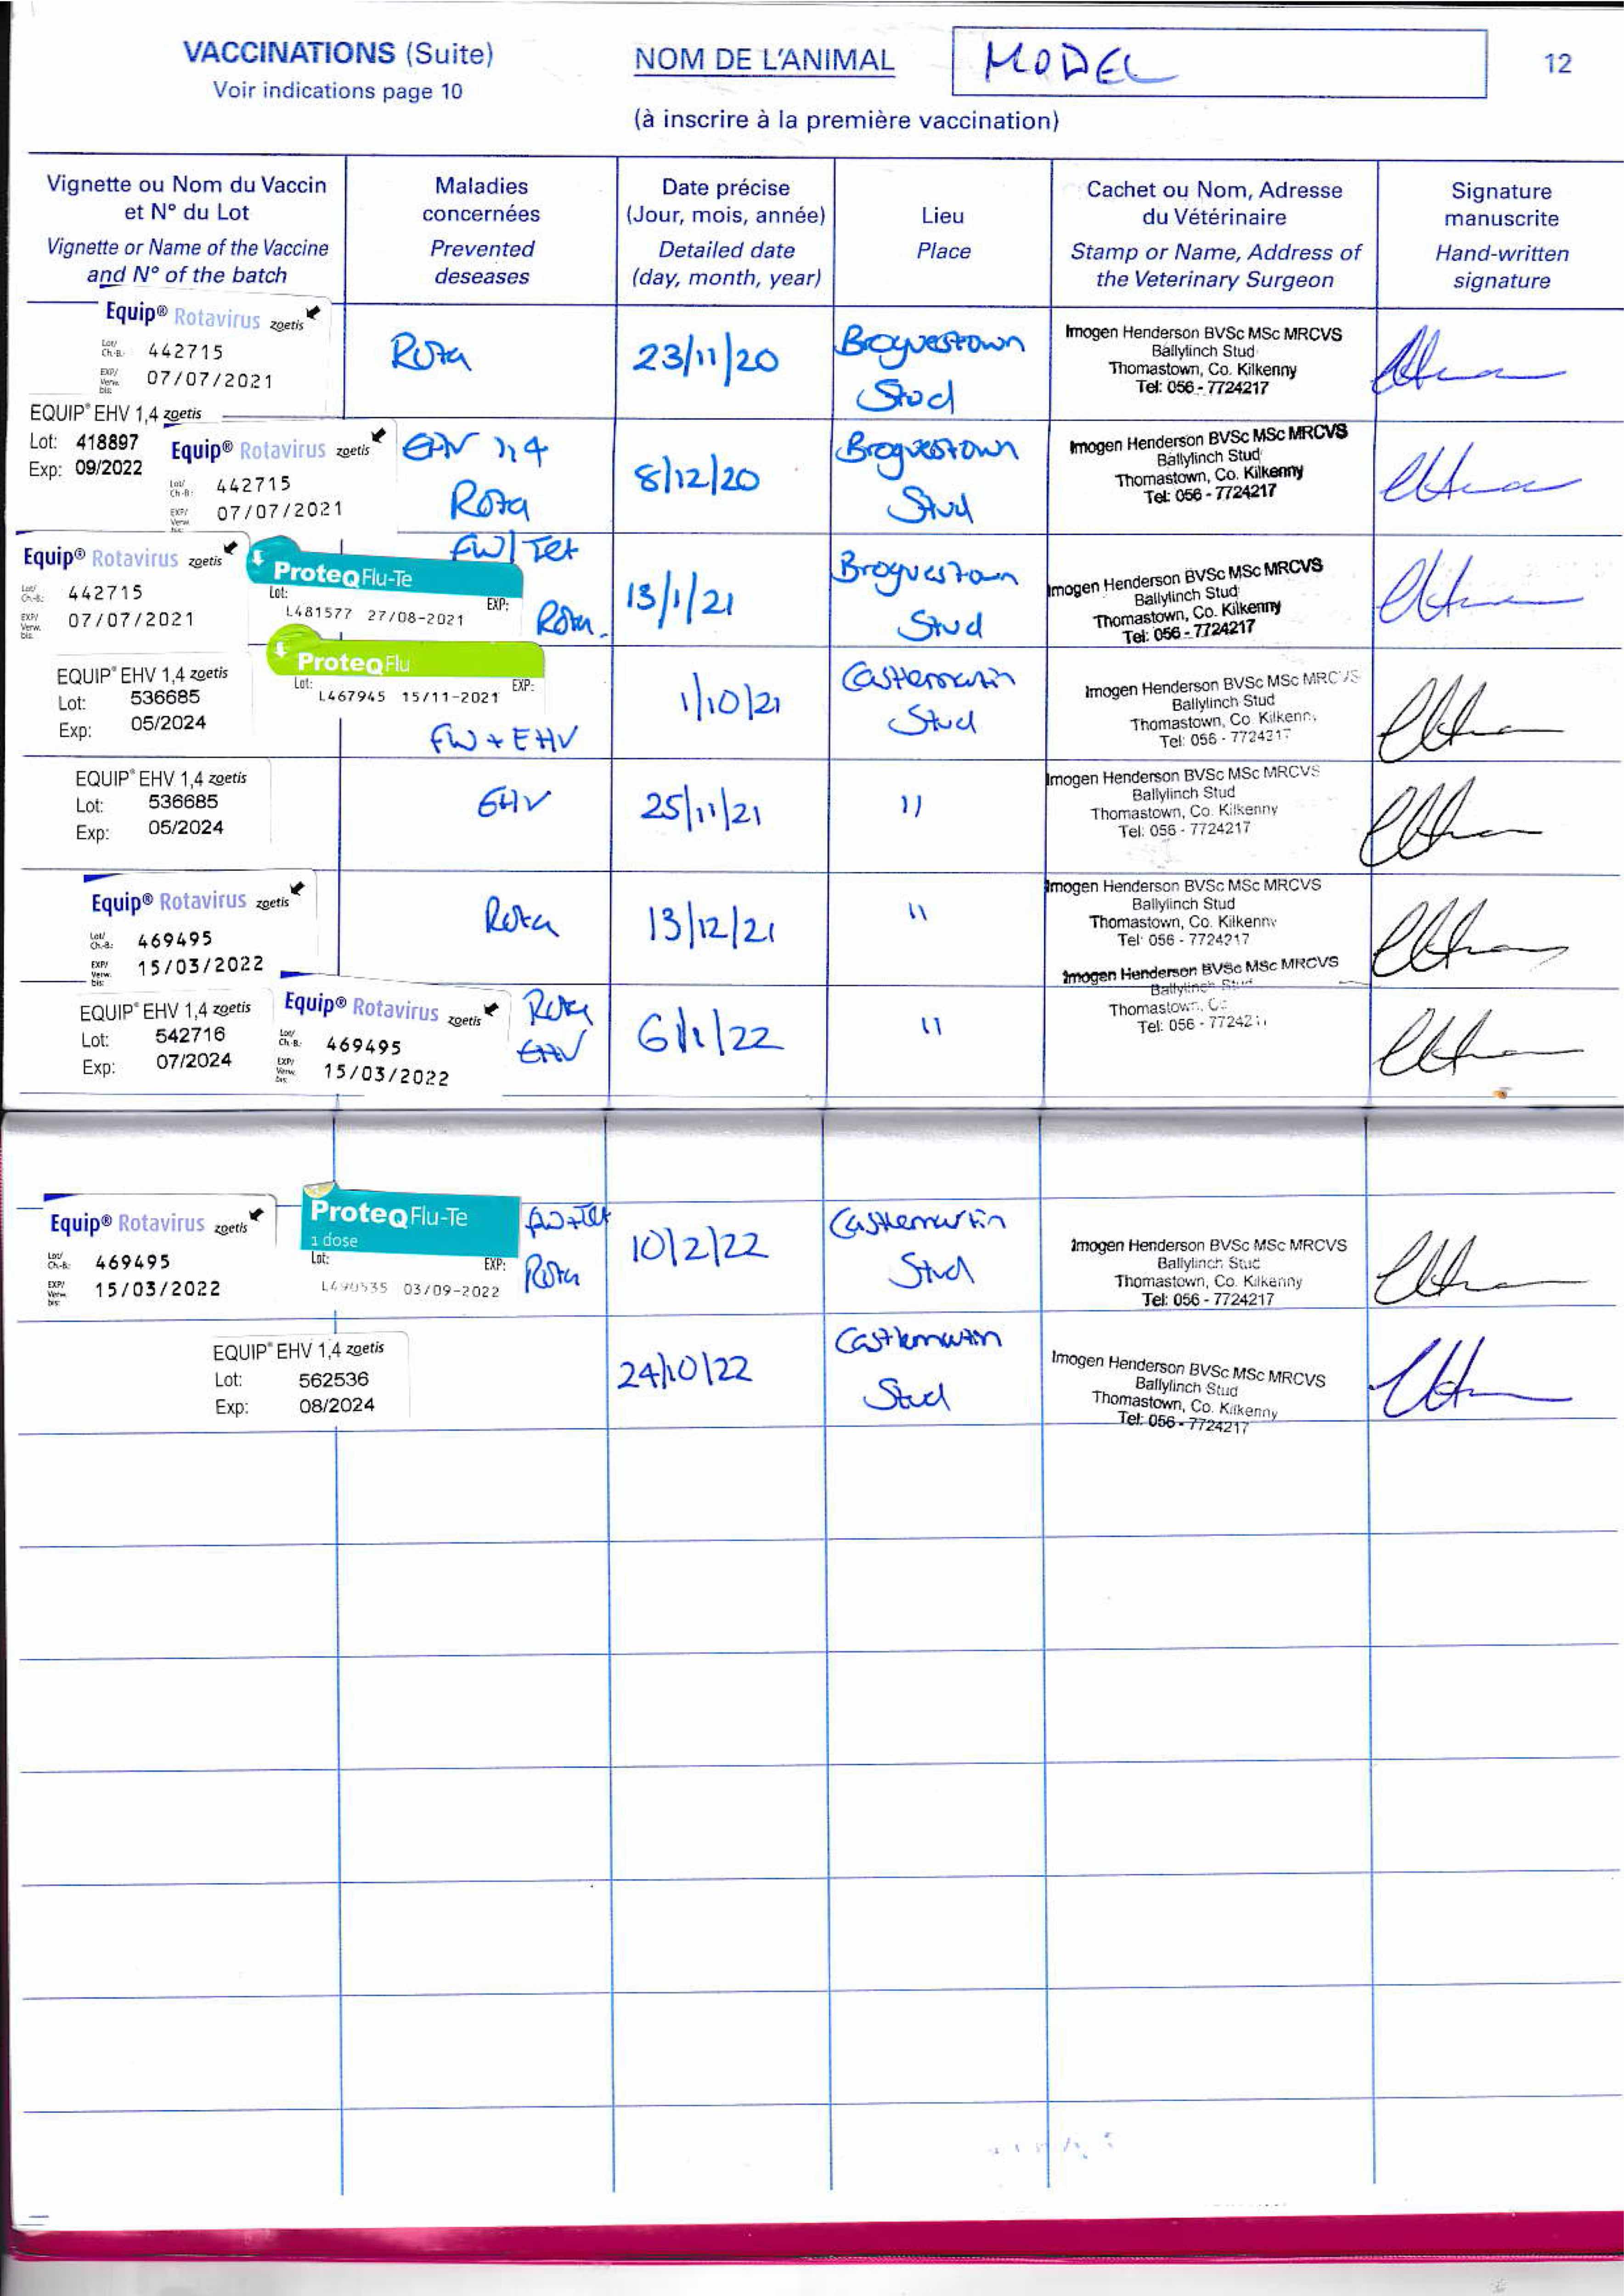 VACCINATIONS (Suite)
Voir indications page 10
NOM DE L'ANIMAL
MODEL
12
(à inscrire à la première vaccination)
Vignette ou Nom du Vaccin
et N° du Lot
Vignette or Name of the Vaccine
and N° of the batch
Maladies
concernées
Prevented
deseases
Date précise
(Jour, mois, année)
Detailed date
(day, month, year)
Lieu
Place
Cachet ou Nom, Adresse
du Vétérinaire
Stamp or Name, Address of
the Veterinary Surgeon
Signature
manuscrite
Hand-written
signature
Equip® Rotavirus zoetis
Lot/
Ch.-B.:
442715
EXP/
Verw.
bis:
07/07/2021
Rota
23/11/20
Broguestown
Stud
Imogen Henderson BVSc MSc MRCVS
Ballylinch Stud
Thomastown, Co. Kilkenny
Tel: 056 - 7724217
EQUIP® EHV 1,4 zoetis
Lot: 418897
Exp: 09/2022
Equip® Rotavirus zoetis
Lot/
Ch.-B.:
442715
EXP/
Verw.
bis:
07/07/2021
EHV 1,4
Rota
8/12/20
Broguestown
Stud
Imogen Henderson BVSc MSc MRCVS
Ballylinch Stud
Thomastown, Co. Kilkenny
Tel: 056 - 7724217
Equip® Rotavirus zoetis
Lot/
Ch.-B.:
442715
EXP/
Verw.
bis:
07/07/2021
ProteqFlu-Te
Lot:
EXP:
L481577 27/08-2021
Flu/Tet
Rota.
13/1/21
Broguestown
Stud
Imogen Henderson BVSc MSc MRCVS
Ballylinch Stud
Thomastown, Co. Kilkenny
Tel: 056 - 7724217
EQUIP® EHV 1,4 zoetis
Lot: 536685
Exp: 05/2024
ProteqFlu
Lot:
EXP:
L467945 15/11-2021
Flu + EHV
1/10/21
Castlemartin
Stud
Imogen Henderson BVSc MSc MRCVS
Ballylinch Stud
Thomastown, Co Kilkenny
Tel: 056 - 7724217
EQUIP® EHV 1,4 zoetis
Lot: 536685
Exp: 05/2024
EHV
25/11/21
11
Imogen Henderson BVSc MSc MRCVS
Ballylinch Stud
Thomastown, Co. Kilkenny
Tel: 056 - 7724217
Equip® Rotavirus zoetis
Lot/
Ch.-B.:
469495
EXP/
Verw.
bis:
15/03/2022
Rota
13/12/21
11
Imogen Henderson BVSc MSc MRCVS
Ballylinch Stud
Thomastown, Co. Kilkenny
Tel: 056 - 7724217
EQUIP® EHV 1,4 zoetis
Lot: 542716
Exp: 07/2024
Equip® Rotavirus zoetis
Lot/
Ch.-B.:
469495
EXP/
Verw.
bis:
15/03/2022
Rota
EHV
6/1/22
11
Imogen Henderson BVSc MSc MRCVS
Ballylinch Stud
Thomastown, Co
Tel: 056 - 77242
Equip® Rotavirus zoetis
Lot/
Ch.-B.:
469495
EXP/
Verw.
bis:
15/03/2022
ProteqFlu-Te
1 dose
Lot:
EXP:
L490535 03/09-2022
Flu+Tet
Rota
10/2/22
Castlemartin
Stud
Imogen Henderson BVSc MSc MRCVS
Ballylinch Stud
Thomastown, Co. Kilkenny
Tel: 056 - 7724217
EQUIP® EHV 1,4 zoetis
Lot: 562536
Exp: 08/2024
24/10/22
Castlemartin
Stud
Imogen Henderson BVSc MSc MRCVS
Ballylinch Stud
Thomastown, Co. Kilkenny
Tel: 056 - 7724217